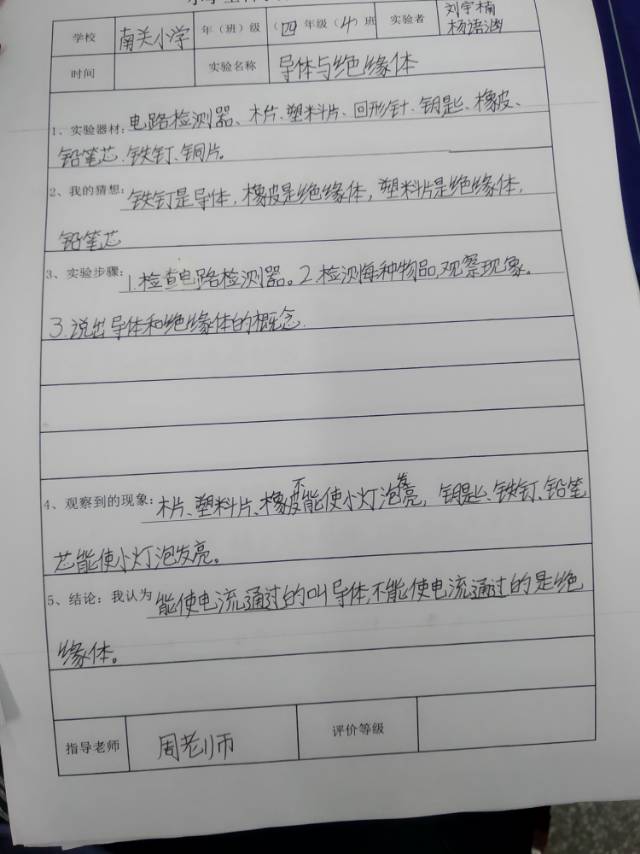 学校 南关小学 年（班）级 （四年级（4）班 实验者 刘宇楠
杨语涵
时间 实验名称 导体与绝缘体
1、实验器材：电路检测器、木片、塑料片、回形针、钥匙、橡皮、
铅笔芯、铁钉、铜片。
2、我的猜想：铁钉是导体，橡皮是绝缘体，塑料片是绝缘体，
铅笔芯
3、实验步骤：1.检查电路检测器。2.检测每种物品，观察现象。
3.说出导体和绝缘体的概念.
4、观察到的现象：木片、塑料片、橡皮不能使小灯泡发亮，钥匙、铁钉、铅笔
芯能使小灯泡发亮。
5、结论：我认为能使电流通过的叫导体，不能使电流通过的是绝
缘体。
指导老师 周老师 评价等级